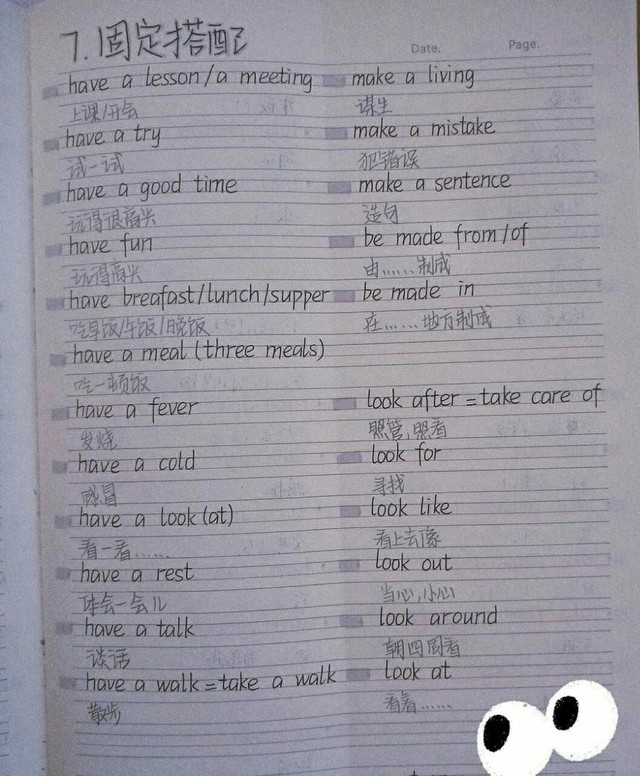 7.固定搭配
Date. Page.
have a lesson/a meeting
上课/开会
have a try
试一试
have a good time
玩得很高兴
have fun
玩得高兴
have breafast/lunch/supper
吃早饭/午饭/晚饭
have a meal (three meals)
吃一顿饭
have a fever
发烧
have a cold
感冒
have a look (at)
看一看……
have a rest
体会一会儿
have a talk
谈话
have a walk = take a walk
散步
make a living
谋生
make a mistake
犯错误
make a sentence
造句
be made from/of
由……制成
be made in
在……地方制成
look after = take care of
照管,照看
look for
寻找
look like
看上去像
look out
当心,小心
look around
朝四周看
look at
看着……